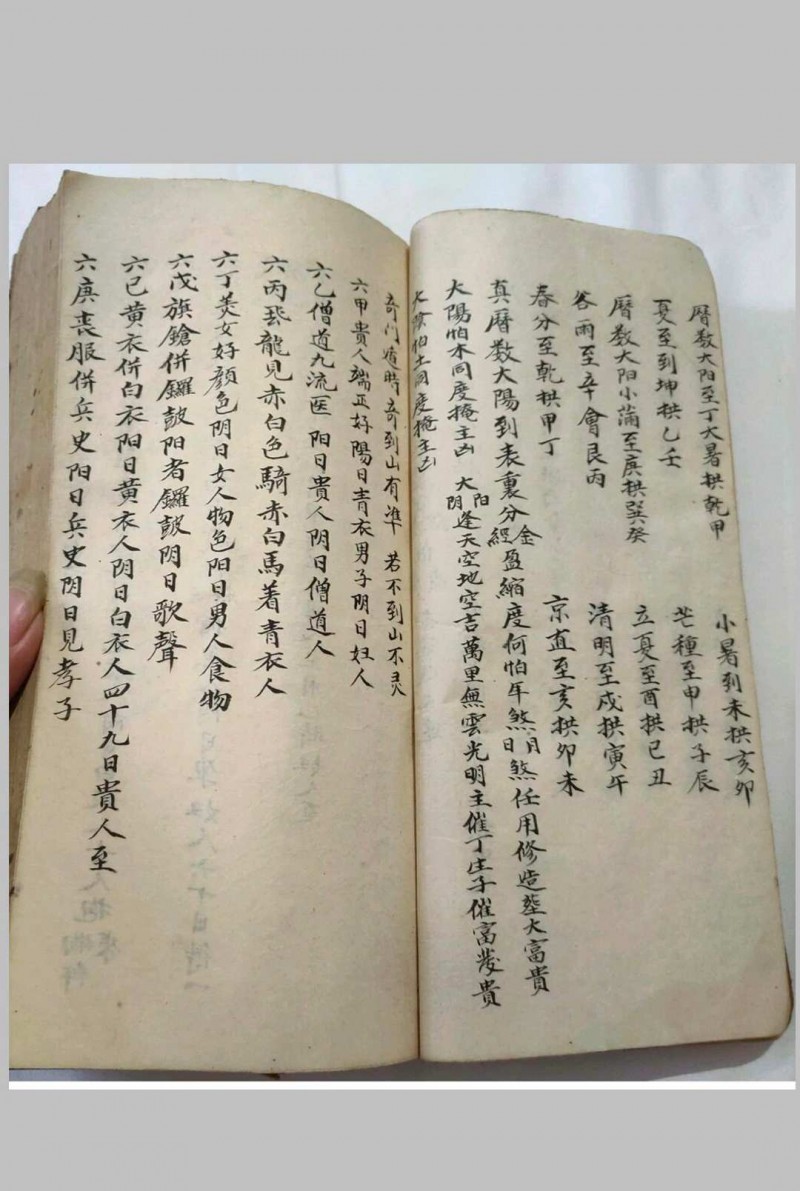 曆数太阳至丁大暑拱乾甲
小暑到未拱亥卯
夏至到坤拱乙壬
芒種至申拱子辰
曆数大阳小蒲至庚拱巽癸
立夏至酉拱巳丑
谷雨至辛會艮丙
清明至戍拱寅午
春分至乾拱甲丁
京直至亥拱卯未
真曆数大陽到表裏分金經盈縮度何怕年煞月日煞任用修造塟大富貴
大陽怕木同度掩主凶 太阳阴逢天空地空吉萬里無雲光明主催丁生子催富發貴
太陰怕土同度掩主凶
奇门遁時奇到山有凖 若不到山不灵
六甲貴人端正好陽日青衣男子阴日妇人
六乙僧道九流医 阳日貴人阴日僧道人
六丙飛龍見赤白色騎赤白馬着青衣人
六丁美女好顔色阴日女人物色阳日男人食物
六戊旗鎗併鑼鼓阳者鑼鼓阴日歌聲
六己黄衣併白衣阳日黄衣人阴日白衣人四十九日貴人至
六庚丧服併兵史阳日兵史阴日見孝子